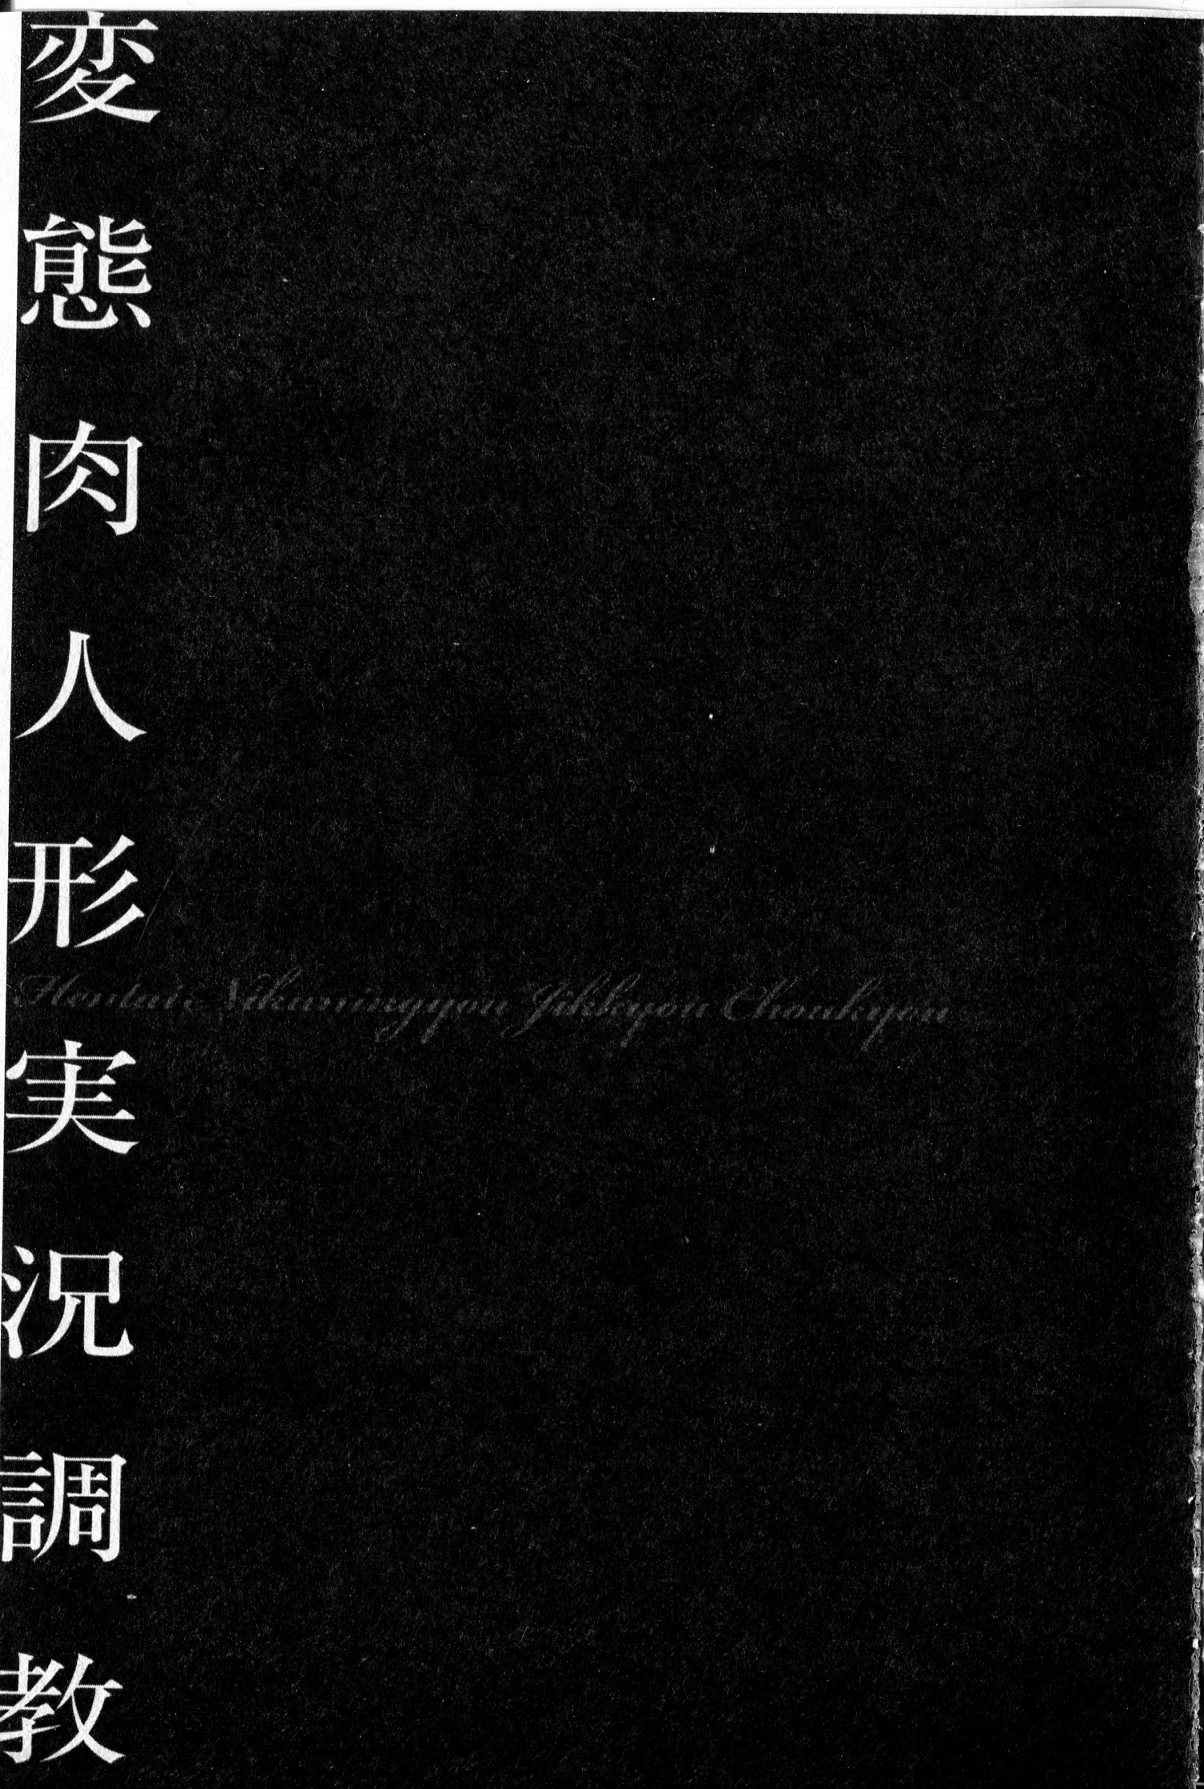 変態肉人形実況調教
Hentai Nikuningyou Jikkyou Choukyou